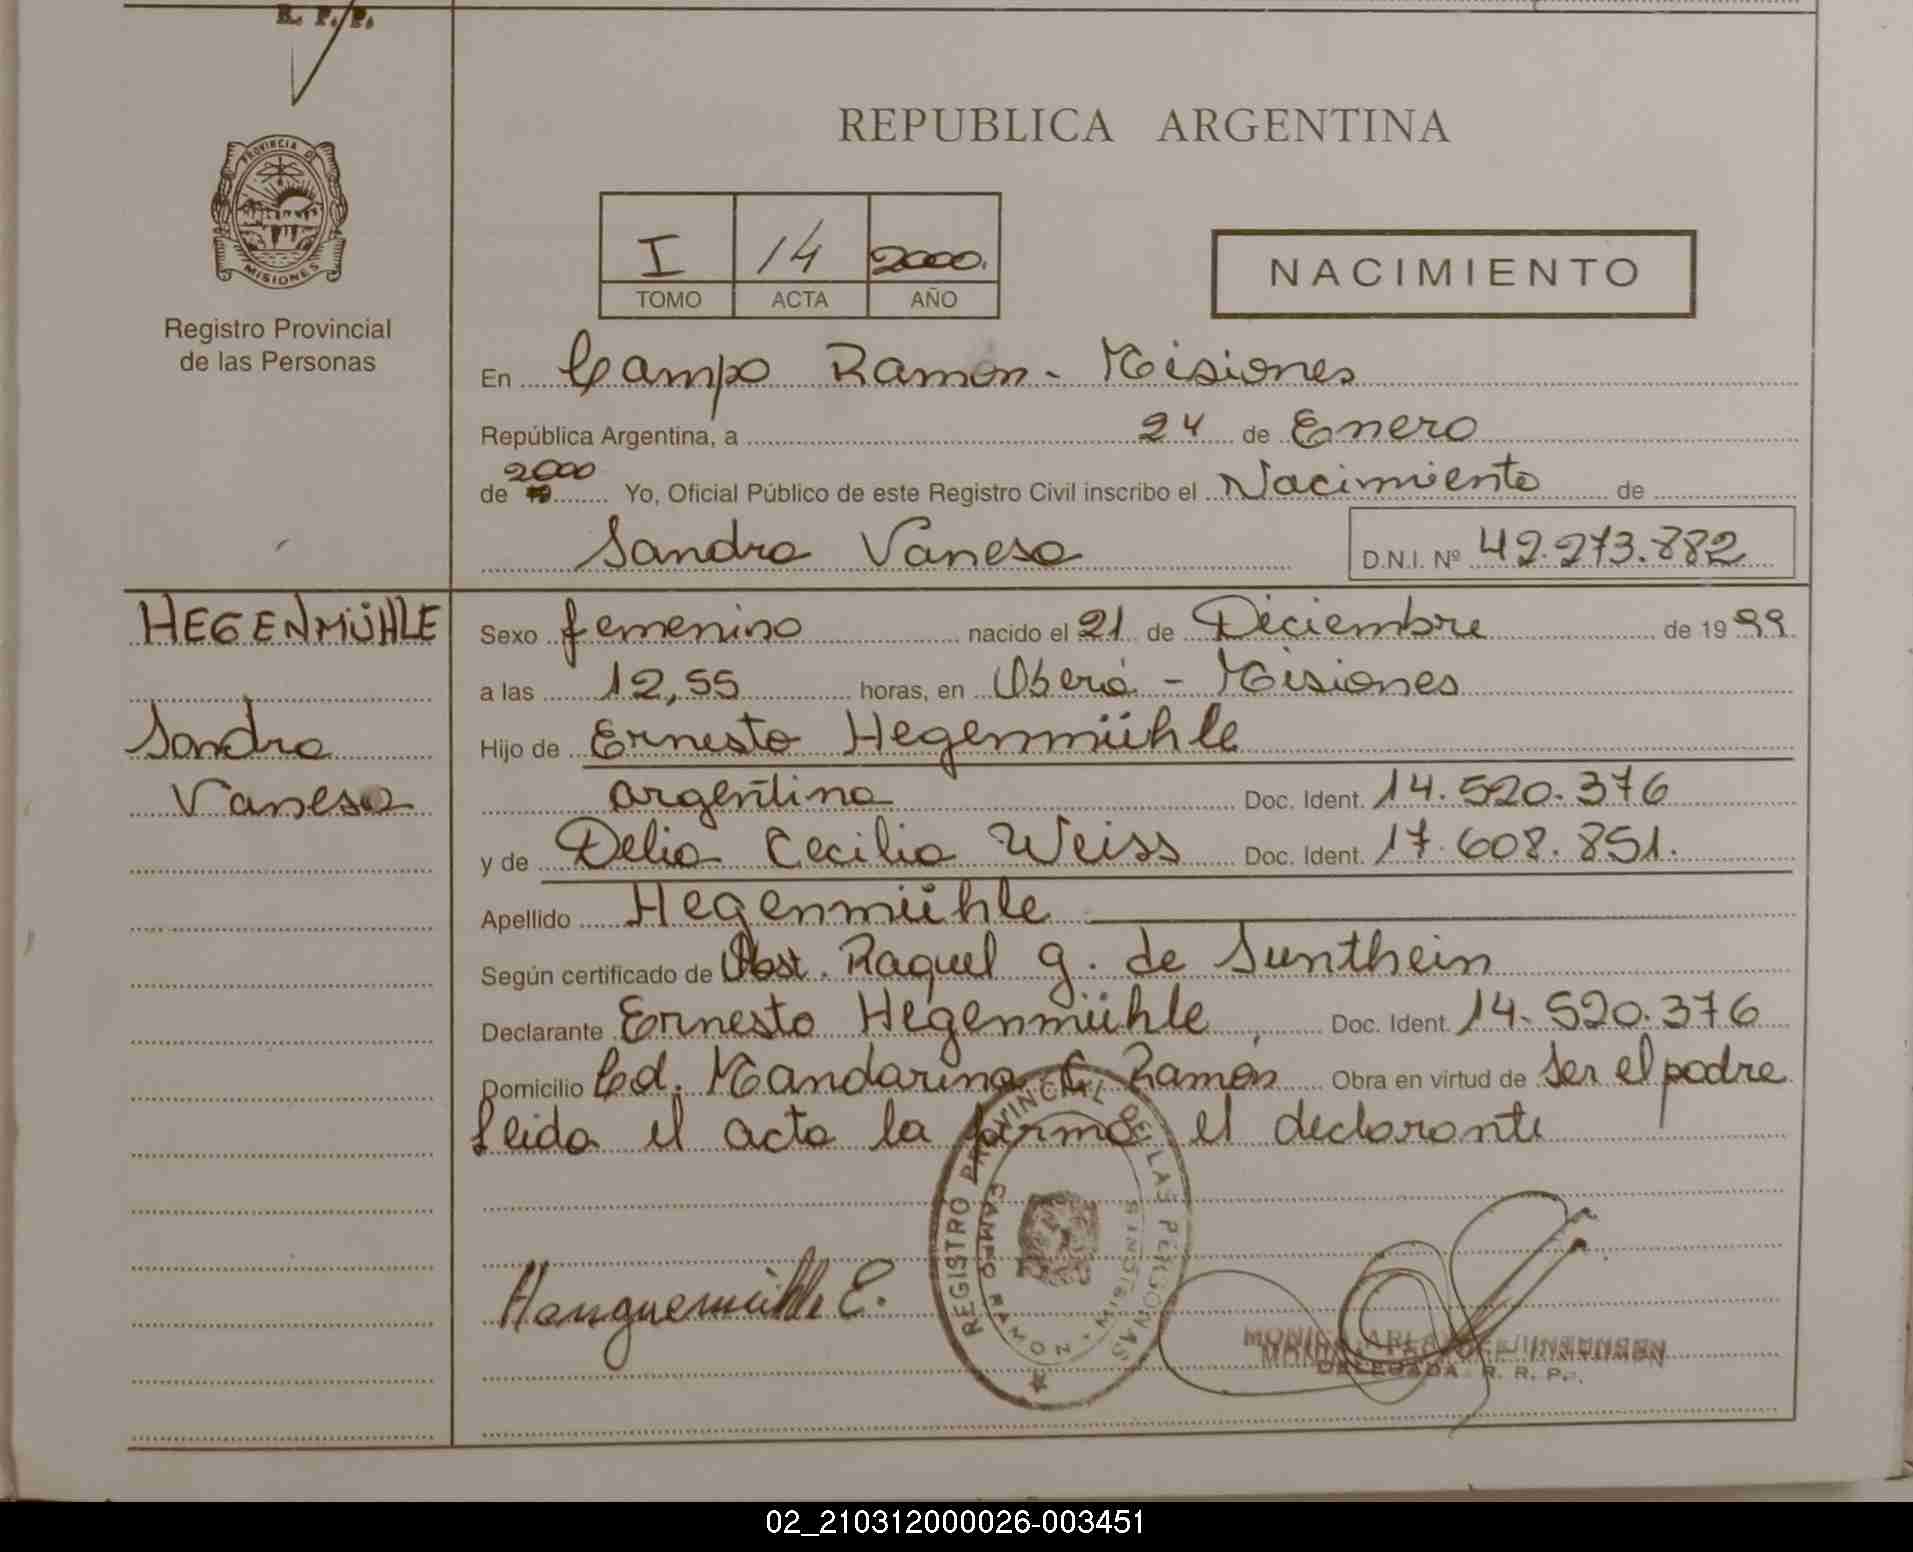 R. P. P.
PROVINCIA DE
MISIONES
Registro Provincial
de las Personas
REPUBLICA ARGENTINA
I 14 2000.
TOMO ACTA AÑO
NACIMIENTO
En Campo Ramón - Misiones
República Argentina, a 24 de Enero
2000
de 19 Yo, Oficial Público de este Registro Civil inscribo el Nacimiento de
Sandra Vanesa D.N.I. Nº 42.273.882
HEGENMÜHLE
Sandra
Vanesa
Sexo femenino nacido el 21 de Diciembre de 1999
a las 12,55 horas, en Oberá - Misiones
Hijo de Ernesto Hegenmühle
argentino Doc. Ident. 14.520.376
y de Delia Cecilia Weiss Doc. Ident. 17.608.851.
Apellido Hegenmühle
Según certificado de Obst. Raquel G. de Sunthein
Declarante Ernesto Hegenmühle, Doc. Ident. 14.520.376
Domicilio Cd. Mandarina C. Ramón Obra en virtud de ser el padre
Leida el acta la firma el declarante
REGISTRO PROVINCIAL DE LAS PERSONAS
CAMPO RAMON - MISIONES
DELEGADA R. R. P.
02_210312000026-003451